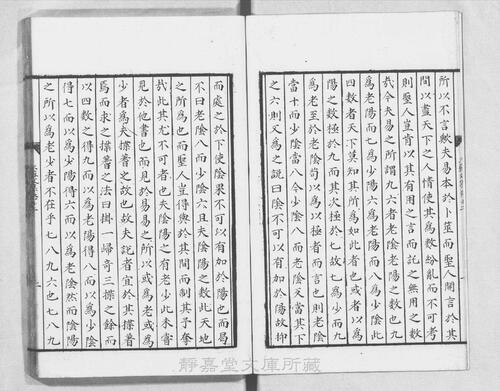 所以不言歟夫易本於卜筮而聖人開言於其
間以盡天下之人情使其為數紛亂而不可考
則聖人豈肯以其有用之言而託之無用之數
哉今夫易之所謂九六者老陰老陽之數也九
為老陽而七為少陽六為老陰而八為少陰此
四數者天下莫知其所為如此者也或者以為
陽之數極於九而其次極於七故七為少而九
為老至於老陰苟以為以極者而言也則老陰
當十而少陰當八今少陰八而老陰反當其下
之六則又為之說曰陰不可以有加於陽故抑
而處之於下使陰果不可以有加於陽也而曷
不曰老陰八而少陰六且夫陰陽之數此天地
之所為也而聖人豈得與於其間而制其予奪
哉此其尤不可者也夫陰陽之有老少此未嘗
見於他書也而見於易易之所以或為老或為
少者為夫揲蓍之故也故夫說者宜於其揲蓍
焉而求之揲蓍之法曰掛一歸奇三揲之餘而
以四數之得九而以為老陽得八而以為少陰
得七而以為少陽得六而以為老陰然而陰陽
之所以為老少者不在乎七八九六也七八九
靜嘉堂文庫所藏